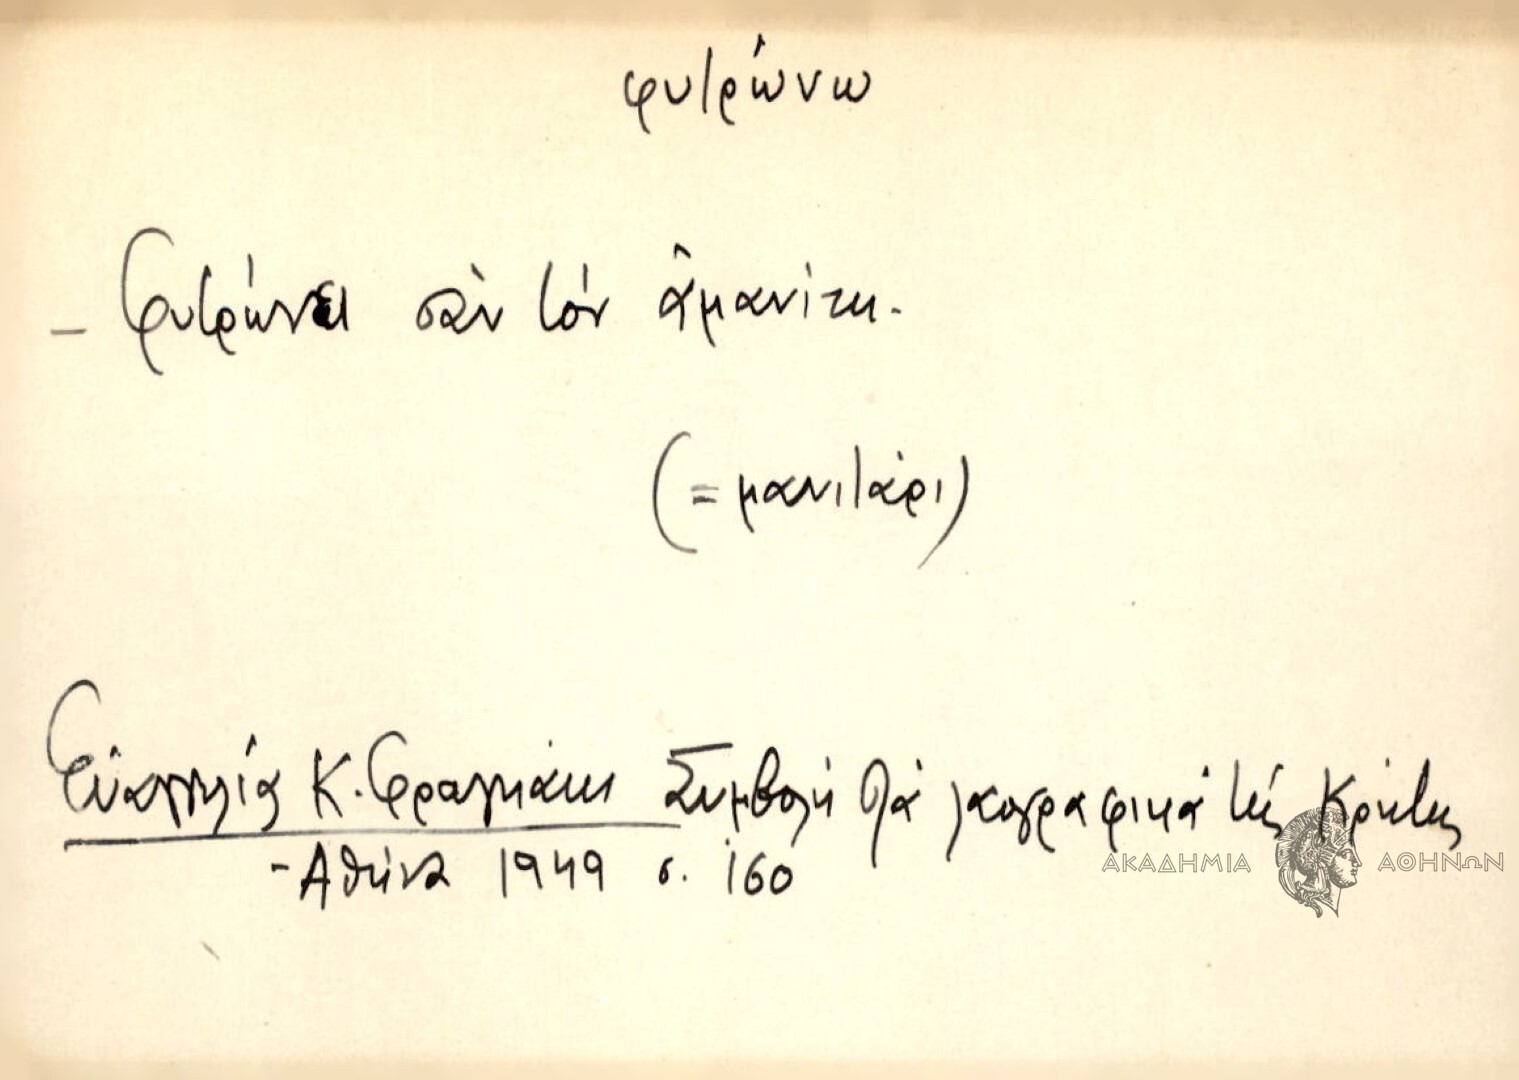 φυτρώνω
- Φυτρώνει σὰν τὸν ἀμανίτη.
(= μανιτάρι)
Εὐαγγελία Κ. Φραγκάκη Συμβολὴ στὰ λαογραφικὰ τῆς Κρήτης
- Ἀθήνα 1949 σ. 160
ΑΚΑΔΗΜΙΑ ΑΘΗΝΩΝ